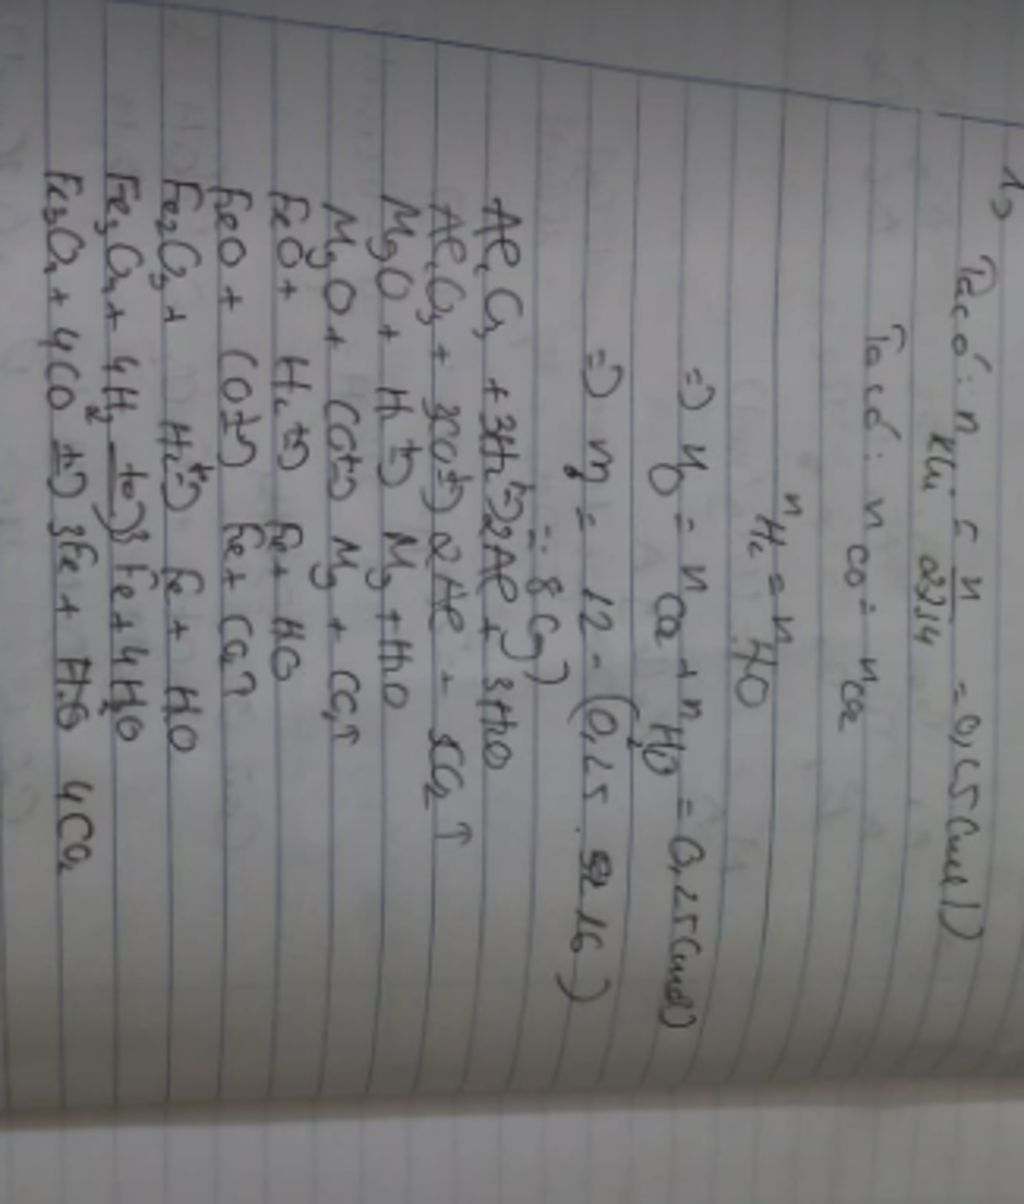 1,
Ta có: n khí = n/22,4 = 0,25(mol)
Ta có: nCO = nCO2
nH2 = nH2O
=> nO = nCO2 + nH2O = 0,25(mol)
=> m = 12 - (0,25 . 16)
= 8(g)
Al2O3 + 3H2 to→ 2Al + 3H2O
Al2O3 + 3CO to→ 2Al + 3CO2↑
MgO + H2 to→ Mg + H2O
MgO + CO to→ Mg + CO2↑
FeO + H2 to→ Fe + H2O
FeO + CO to→ Fe + CO2↑
Fe2O3 + H2 to→ Fe + H2O
Fe3O4 + 4H2 to→ 3Fe + 4H2O
Fe3O4 + 4CO to→ 3Fe + 4CO2